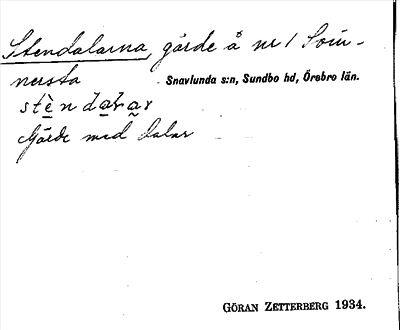 Stendalarna, gärde å nr 1 Svin-
nersta
Snavlunda s:n, Sundbo hd, Örebro län.
stèndaɫar
Gärde med dalar
GÖRAN ZETTERBERG 1934.